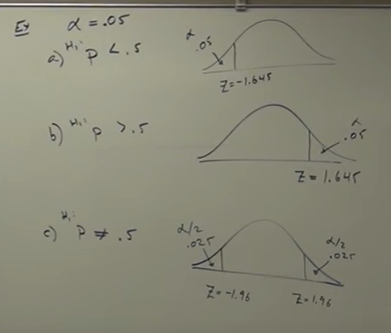 Ex α = .05
a) H₁: P < .5
α
.05
Z = -1.645
b) H₁: P > .5
α
.05
Z = 1.645
c) H₁: P ≠ .5
α/2
.025
α/2
.025
Z = -1.96
Z = 1.96